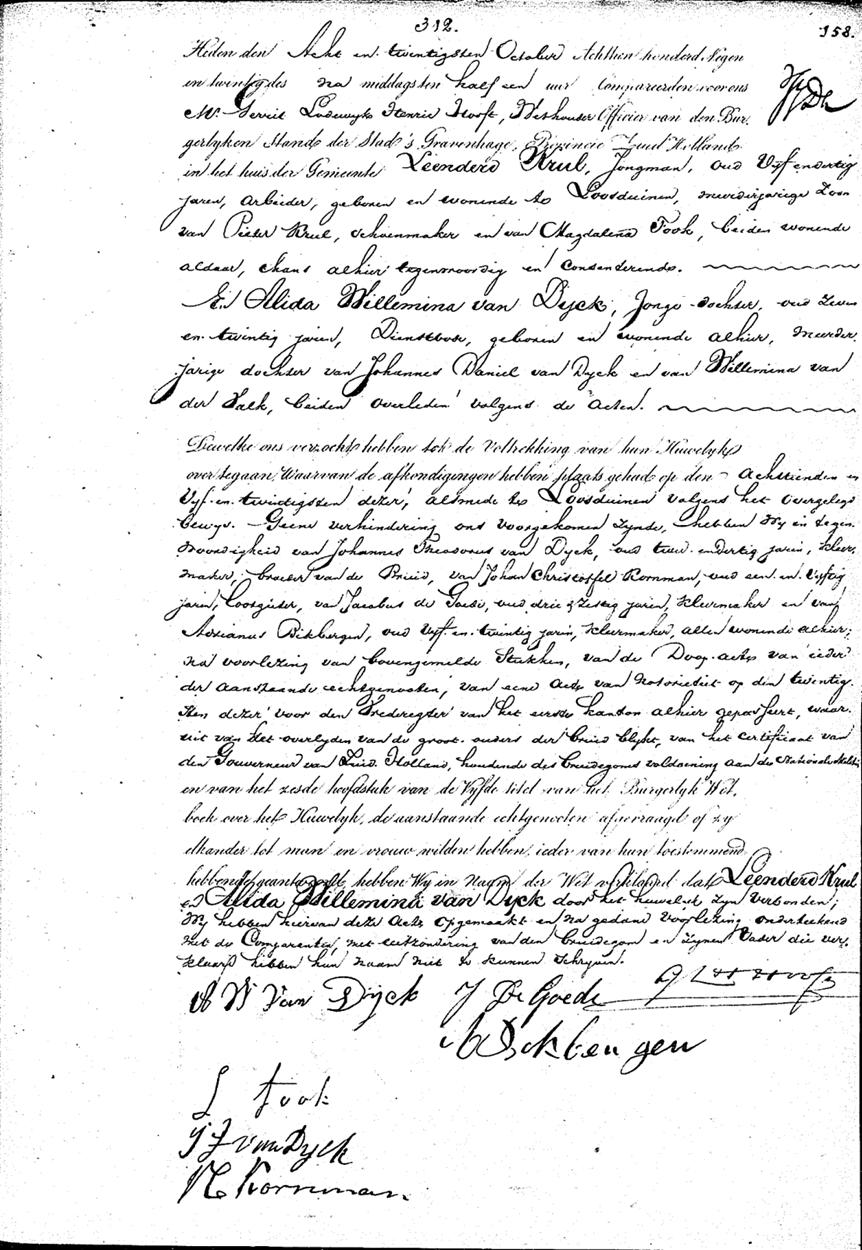 312.
158.
Heden den Acht en twintigsten October Achttien honderd Negen
en twintig des na middags ten half een uur Compareerden voor ons
Mr. Gerrit Lodewyk Henric Hooft, Wethouder Officier van den Bur
gerlyken Stand der Stad 's Gravenhage, Provincie Zuid Holland
in het huis der Gemeente Leenderd Krul, Jongman, oud Vyf en dertig
jaren, arbeider, geboren en wonende te Loosduinen, meerderjarige Zoon
van Pieter Krul, schoenmaker en van Magdalena Fook, beiden wonende
aldaar, thans alhier tegenwoordig en Consenterende.
En Alida Willemina van Dyck, Jonge dochter, oud Zeven
en twintig jaren, Dienstbode, geboren en wonende alhier, meerder
jarige dochter van Johannes Daniel van Dyck en van Willemina van
der Valk, beiden overleden volgens de acten.
Dewelke ons verzocht hebben tot de voltrekking van hun Huwelyk
over te gaan, Waarvan de afkondigingen hebben plaats gehad op den achttienden en
Vyf en twintigsten dezer, alsmede te Loosduinen volgens het overgelegd
bewys. Geene verhindering ons voorgekomen zynde, hebben Wy in tegen
woordigheid van Johannes Theodorus van Dyck, oud twee en dertig jaren, kleer
maker, broeder van de Bruid, van Johan Christoffel Kornman, oud een en vyftig
jaren, loodgieter, van Jacobus de Goede, oud drie & zestig jaren, kleermaker en van
Adrianus Dikbergen, oud vyf en twintig jaren, kleermaker, allen wonende alhier;
na voorlezing van bovengemelde Stukken, van de Doop acten van ieder
der aanstaande echtgenooten, van eene acte van Notorieteit op den twintig
sten dezer voor den Vrederegter van het eerste kanton alhier gepasseert, waar
uit van het overlyden van de groot ouders der bruid blykt, van het certificaat van
den Gouverneur van Zuid Holland, houdende des bruidegoms voldoening aan de Nationale Militie
en van het zesde hoofdstuk van de Vyfde titel van het Burgerlyk Wet
boek over het Huwelyk, de aanstaande echtgenooten afgevraagd of zy
elkander tot man en vrouw wilden hebben, ieder van hun toestemmend
hebbende geantwoord hebben Wy in Naam der Wet verklaard dat Leenderd Krul
en Alida Willemina van Dyck door het huwelyk zyn verbonden;
Wy hebben hiervan deze Acte opgemaakt en na gedane voorlezing onderteekend
met de Comparanten, met uitzondering van den bruidegom en zynen Vader die ver
klaard hebben hun naam niet te kunnen schryven.
A W Van Dyck J De Goede G L H Hooft
A Dikbergen
Fook
van Dyck
Kornman